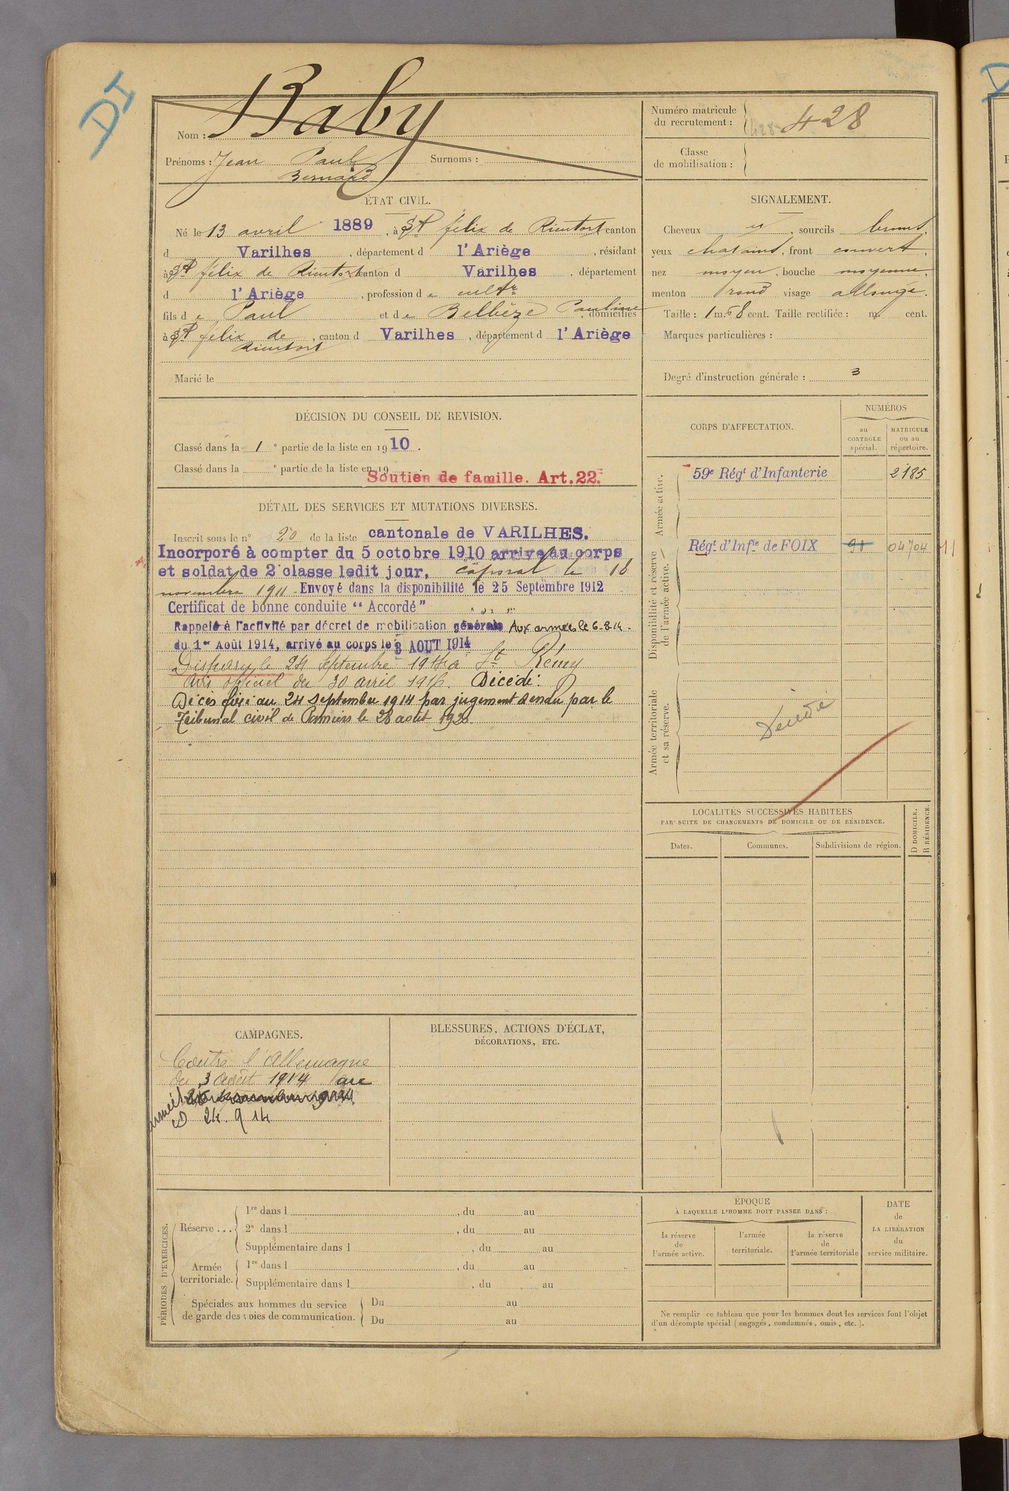 DI
Nom : Baby
Prénoms : Jean Paul Surnoms :
Bernard
Numéro matricule
du recrutement : 428
Classe
de mobilisation :
ÉTAT CIVIL.
Né le 13 avril 1889, à St félix de Rieutort canton
d Varilhes, département d l'Ariège, résidant
à St félix de Rieutort canton d Varilhes, département
d l'Ariège, profession de cultr
fils de Paul et de Bellèze Pauline, domiciliés
à St félix de Rieutort, canton d Varilhes, département d l'Ariège
Marié le
SIGNALEMENT.
Cheveux et, sourcils bruns,
yeux chatains, front couvert,
nez moyen, bouche moyenne,
menton rond visage allongé.
Taille : 1 m. 68 cent. Taille rectifiée : m. cent.
Marques particulières :
Degré d'instruction générale : 3
DÉCISION DU CONSEIL DE REVISION.
Classé dans la 1e partie de la liste en 1910.
Classé dans la e partie de la liste en 19
Soutien de famille. Art. 22.
DÉTAIL DES SERVICES ET MUTATIONS DIVERSES.
Inscrit sous le n° 20 de la liste cantonale de VARILHES.
Incorporé à compter du 5 octobre 1910 arrivé au corps
et soldat de 2e classe ledit jour, caporal le 16
novembre 1911. Envoyé dans la disponibilité le 25 Septembre 1912
Certificat de bonne conduite "Accordé"
Rappelé à l'activité par décret de mobilisation générale Aux armées le 6-8-14.
du 1er Août 1914, arrivé au corps le 3 AOUT 1914
Disparu le 24 septembre 1914 à St Rémy
Avis officiel du 30 avril 1916. Décédé.
Décès fixé au 24 septembre 1914 par jugement rendu par le
Tribunal civil de Pamiers le 28 août 1920.
CORPS D'AFFECTATION.
NUMÉROS
au
CONTROLE
spécial.
MATRICULE
ou au
répertoire.
Armée active.
59e Régt d'Infanterie 2185
Disponibilité et réserve
de l'armée active.
Régt d'Infie de FOIX 91 04704 11
Armée territoriale
et sa réserve.
LOCALITÉS SUCCESSIVES HABITÉES
PAR SUITE DE CHANGEMENTS DE DOMICILE OU DE RÉSIDENCE.
Dates.
Communes.
Subdivisions de région.
D DOMICILE.
R RÉSIDENCE.
CAMPAGNES.
Contre l'Allemagne
du 3 août 1914 au
24. 9 14
BLESSURES, ACTIONS D'ÉCLAT,
DÉCORATIONS, ETC.
PÉRIODES D'EXERCICES.
Réserve ...
1re dans l , du au
2e dans l , du au
Supplémentaire dans l , du au
Armée
territoriale.
1re dans l , du au
Supplémentaire dans l , du au
Spéciales aux hommes du service
de garde des voies de communication.
Du au
Du au
ÉPOQUE
À LAQUELLE L'HOMME DOIT PASSER DANS :
la réserve
de
l'armée active.
l'armée
territoriale.
la réserve
de
l'armée territoriale
DATE
de
LA LIBÉRATION
du
service militaire.
Ne remplir ce tableau que pour les hommes dont les services font l'objet
d'un décompte spécial (engagés, condamnés, omis, etc.).